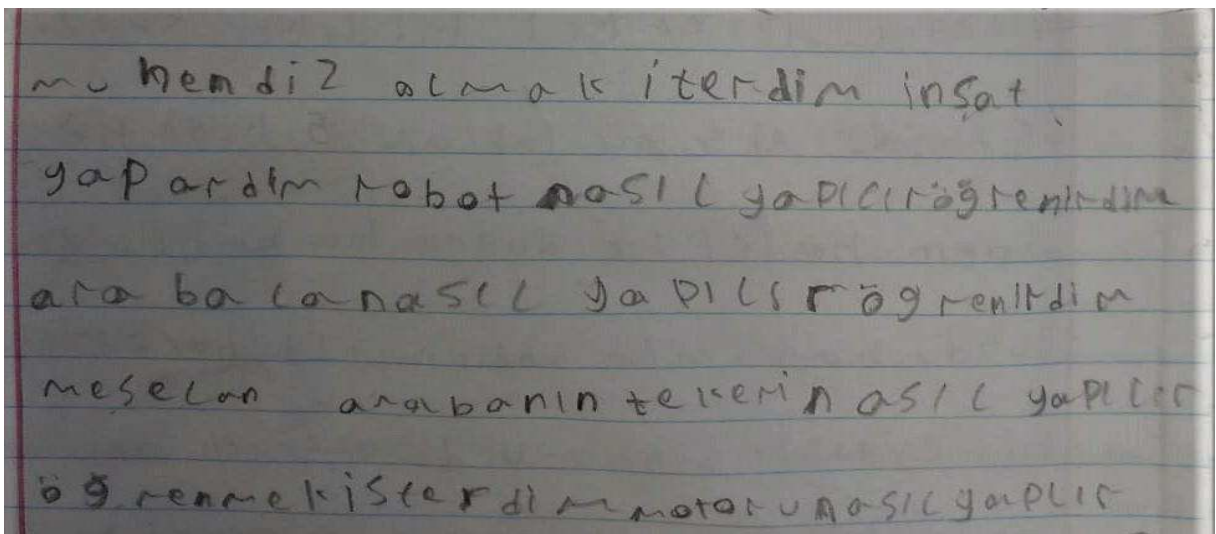 mu hendiz olmak iterdim inşat
yapardım robot nasıl yapılıröğrenirdim
ara ba lanasıl yapılır ögrenirdim
meselan arabanın tekerinasıl yapılır
öğrenmekisterdim motorunasıl yapılır